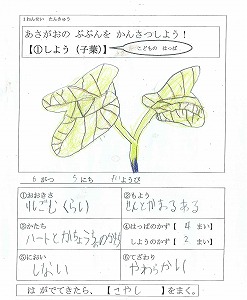 1ねんせい たんきゅう
あさがおの ぶぶんを かんさつしよう！
【①しよう（子葉）】
こどもの はっぱ
6 がつ うにち かようび
①おおきさ
りんごくらい
②もよう
せんとかあるある
③かたち
ハートとかちょうちょみのかたち
④はっぱのかず【 4 まい】
しようのかず【 2 まい】
⑤におい
しない
⑥てざわり
やわらかい
はがでてきたら、【 さやし 】をまく。